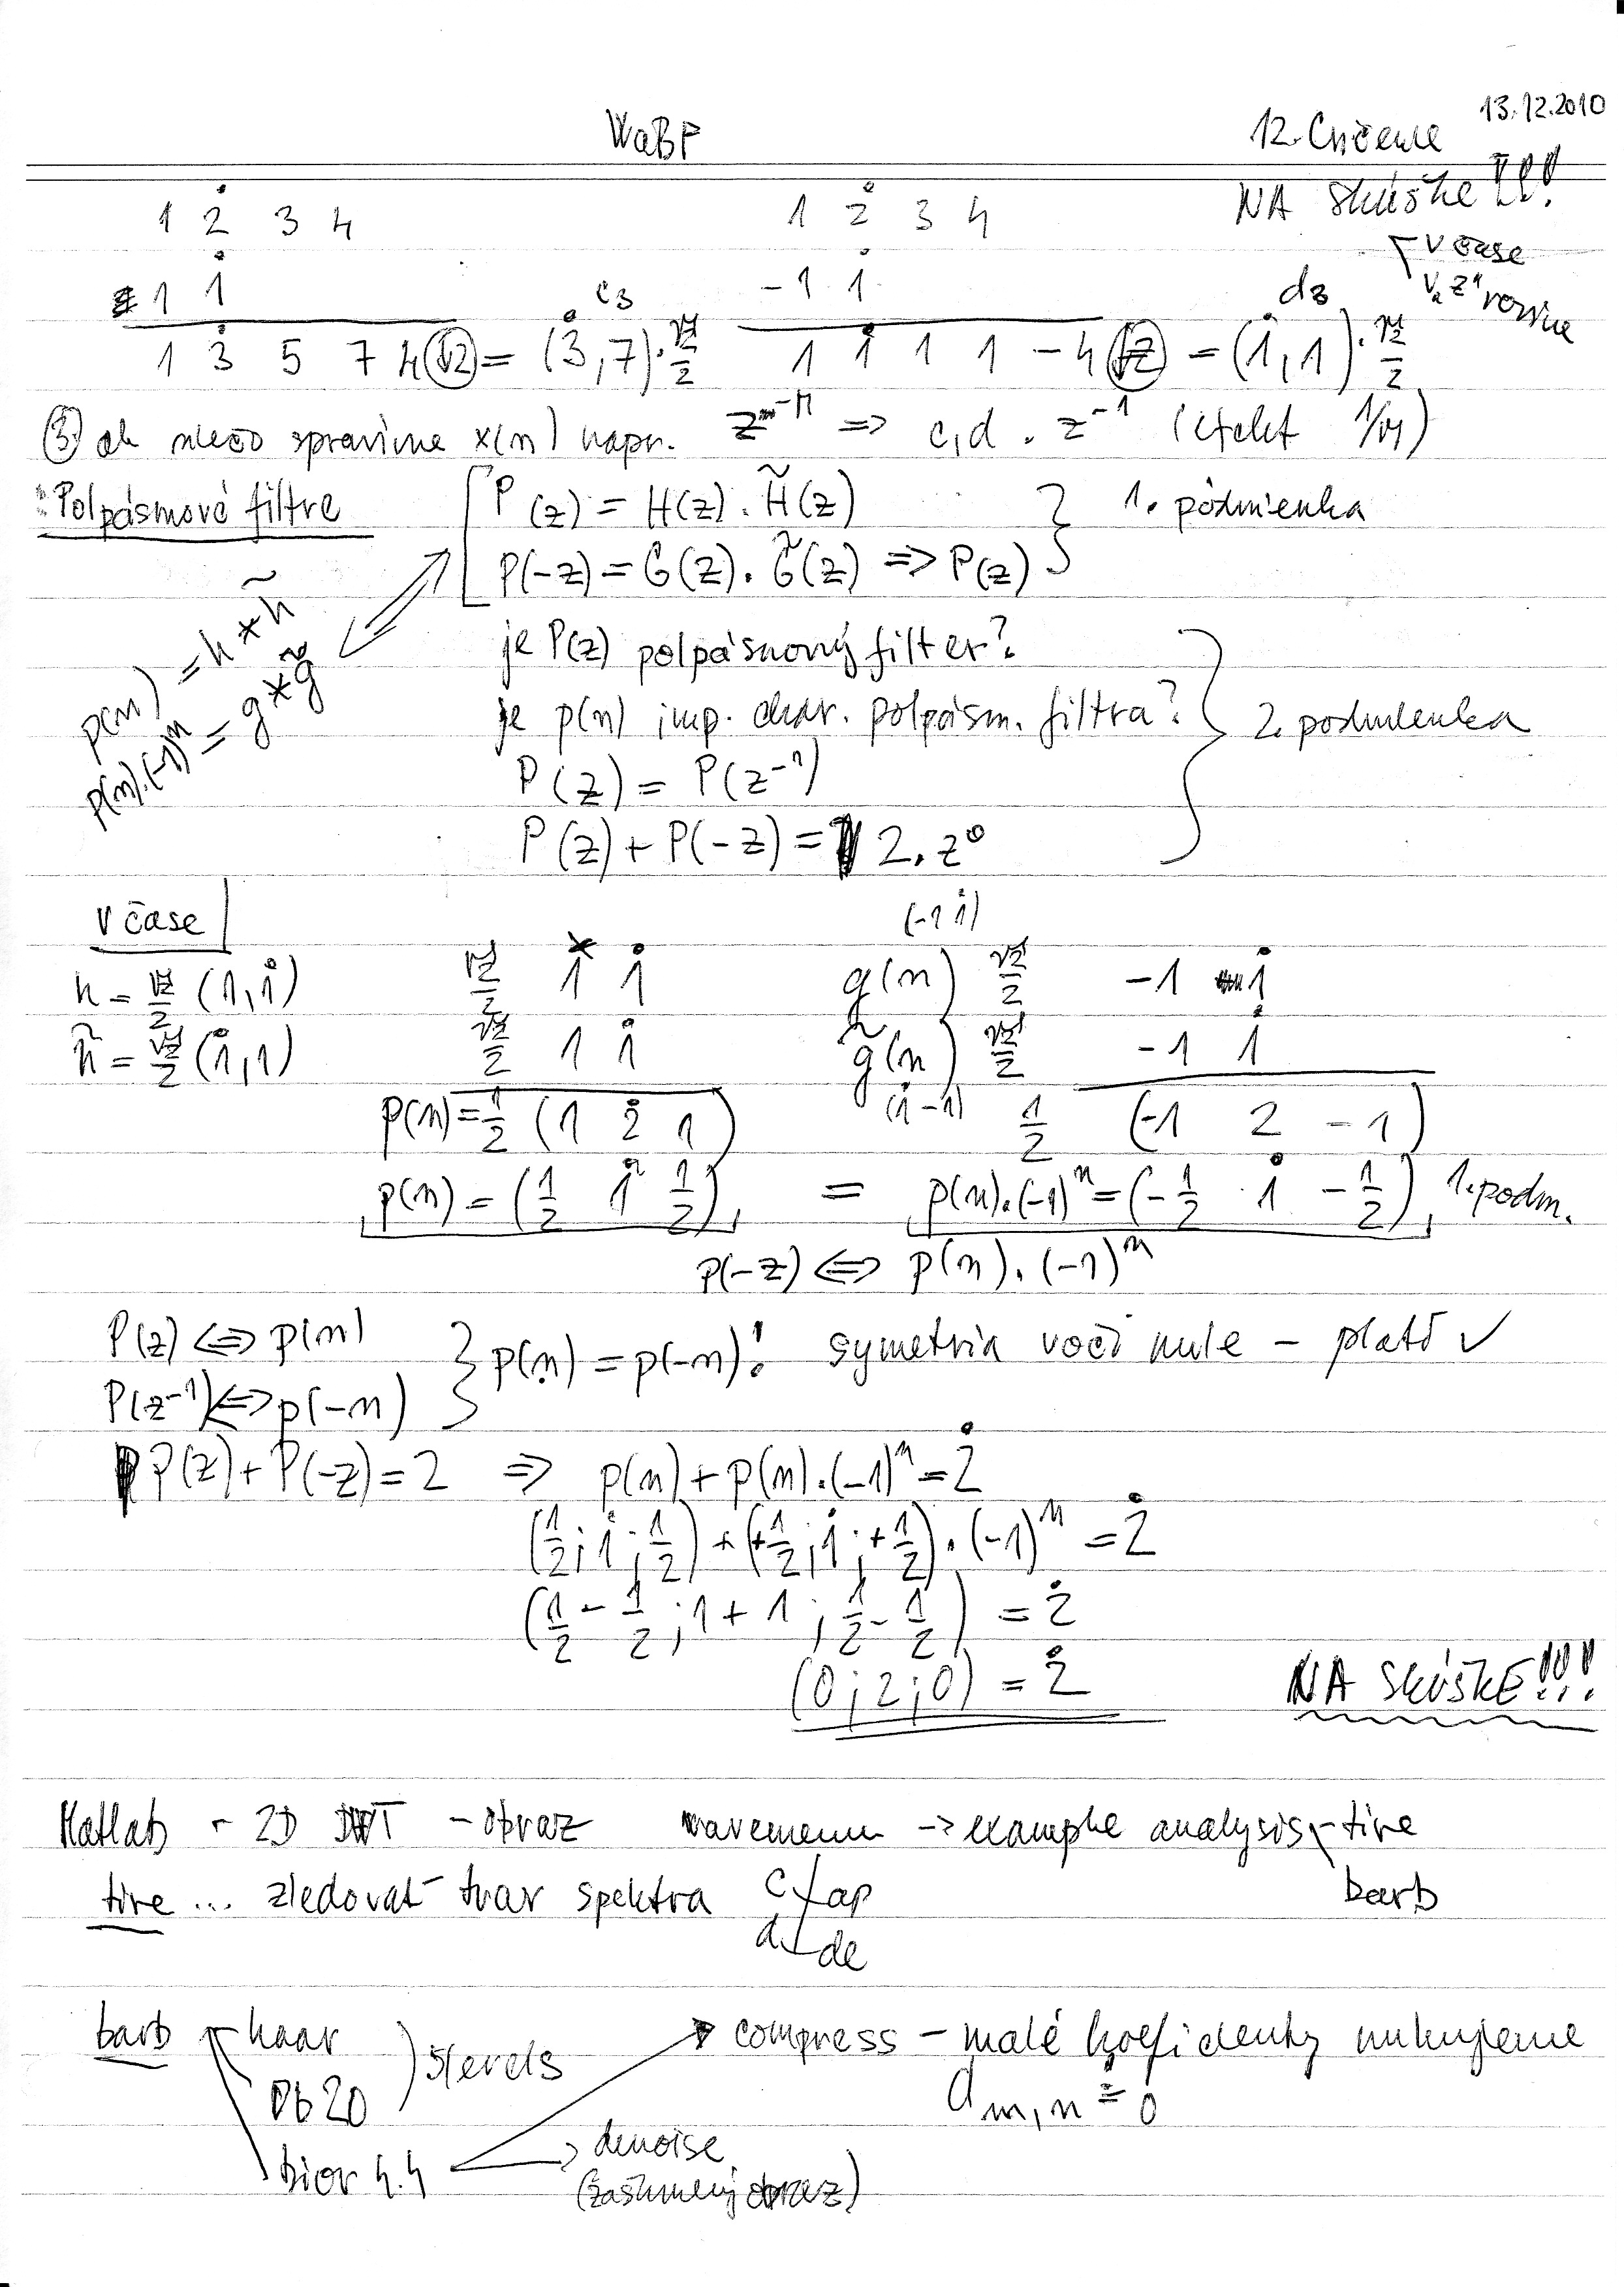 13.12.2010
WaBF 12. Cvičenie
NA skúške !!!
v čase
v "z" rovine
1 2̇ 3 4
1 1̇
1 3̇ 5 7 4 (↓2) = (3̇,7)·√2/2 c₃
1 2̇ 3 4
-1 1̇
1 1̇ 1 1 -4 (↓2) = (1̇,1)·√2/2 d₃
③ ak niečo spravíme x(n) napr. z⁻ᴹ => c,d . z⁻¹ (efekt 1/M)
Polpásmové filtre
P(z) = H(z) . H̃(z)
P(-z) = G(z) . G̃(z) => P(z)
1. podmienka
p(n) = h * h̃
p(n).(-1)ⁿ = g * g̃
je P(z) polpásmový filter?
je p(n) imp. char. polpásm. filtra?
P(z) = P(z⁻¹)
P(z) + P(-z) = 2 . z⁰
2. podmienka
v čase
h = √2/2 (1,1̇)
h̃ = √2/2 (1̇,1)
√2/2 1 1̇
√2/2 1 1̇
p(n) = 1/2 (1 2̇ 1)
p(n) = (1/2 1̇ 1/2)
(-1 1̇)
g(n) √2/2 -1 1̇
g̃(n) √2/2 -1 1̇
(1̇ -1)
1/2 (-1 2 -1)
= p(n).(-1)ⁿ = (-1/2 1̇ -1/2) 1. podm.
P(-z) <=> p(n) . (-1)ⁿ
P(z) <=> p(n)
P(z⁻¹) <=> p(-n)
p(n) = p(-n)! symetria voči nule - platí ✓
P(z) + P(-z) = 2 => p(n) + p(n).(-1)ⁿ = 2̇
(1/2; 1̇; 1/2) + (+1/2; 1̇; +1/2) . (-1)ⁿ = 2̇
(1/2 - 1/2; 1 + 1; 1/2 - 1/2) = 2̇
(0; 2; 0) = 2̇
NA SKÚŠKE!!!
Matlab - 2D DWT - obraz wavemenu -> example analysis - tire
barb
tire ... sledovať tvar spektra
c ap
d de
barb haar
Db 20
5 levels
bior 4.4
compress - malé koeficienty nulujeme
d m,n = 0
denoise
(zašumený obraz)